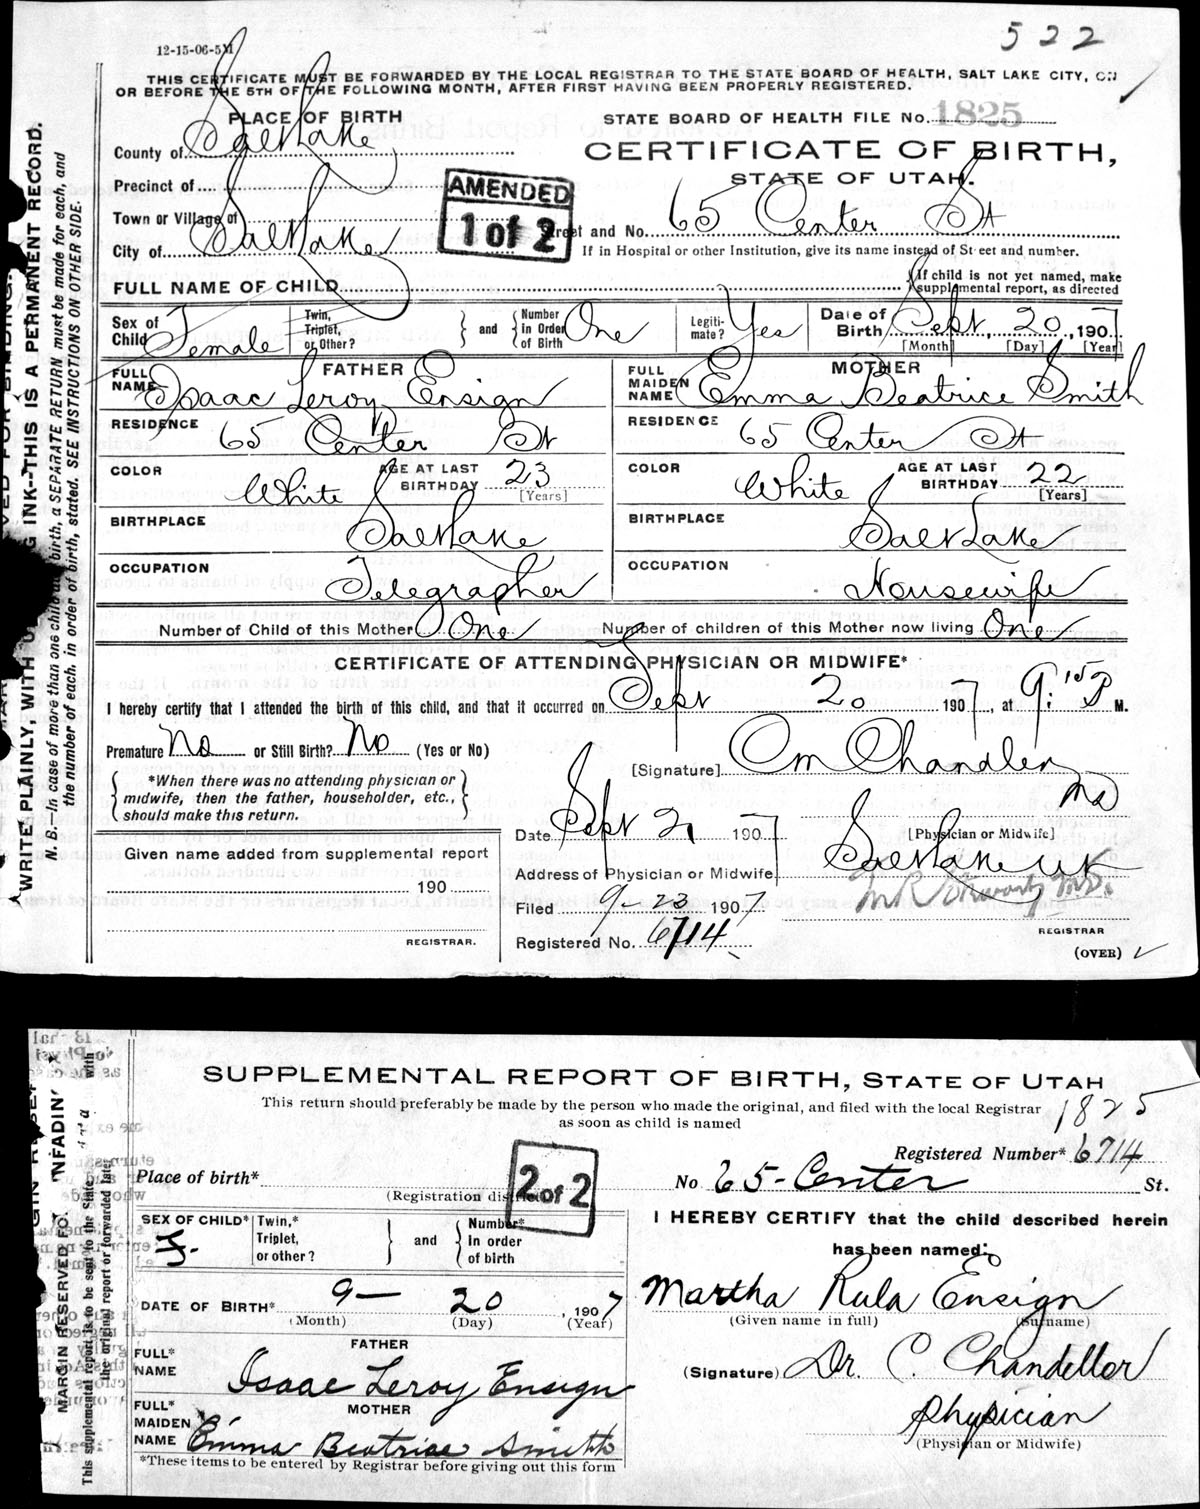 522
12-15-06-5M
THIS CERTIFICATE MUST BE FORWARDED BY THE LOCAL REGISTRAR TO THE STATE BOARD OF HEALTH, SALT LAKE CITY, ON
OR BEFORE THE 5TH OF THE FOLLOWING MONTH, AFTER FIRST HAVING BEEN PROPERLY REGISTERED.
PLACE OF BIRTH
STATE BOARD OF HEALTH FILE No. 1825
County of Salt Lake
CERTIFICATE OF BIRTH,
STATE OF UTAH.
Precinct of
AMENDED
1 of 2
Town or Village of
Street and No. 65 Center St
City of Salt Lake
If in Hospital or other Institution, give its name instead of Street and number.
FULL NAME OF CHILD
If child is not yet named, make
supplemental report, as directed
Sex of Child Female
Twin, Triplet, or Other?
and
Number in Order of Birth One
Legiti-mate? Yes
Date of Birth Sept 20, 1907
[Month] [Day] [Year]
FATHER
FULL NAME Isaac Leroy Ensign
MOTHER
FULL MAIDEN NAME Emma Beatrice Smith
RESIDENCE 65 Center St
RESIDENCE 65 Center St
COLOR White
AGE AT LAST BIRTHDAY 23 [Years]
COLOR White
AGE AT LAST BIRTHDAY 22 [Years]
BIRTHPLACE Salt Lake
BIRTHPLACE Salt Lake
OCCUPATION Telegrapher
OCCUPATION Housewife
Number of Child of this Mother One
Number of children of this Mother now living One
CERTIFICATE OF ATTENDING PHYSICIAN OR MIDWIFE*
I hereby certify that I attended the birth of this child, and that it occurred on Sept 20 1907, at 9:15 P M.
Premature No or Still Birth? No (Yes or No)
[Signature] Chandler
MD
*When there was no attending physician or
midwife, then the father, householder, etc.,
should make this return.
Date Sept 21 1907
[Physician or Midwife]
Given name added from supplemental report
190
REGISTRAR.
Address of Physician or Midwife Salt Lake Ut
Filed 9-23 1907
M.D.
REGISTRAR
Registered No. 6714
(OVER)
WRITE PLAINLY, WITH INK--THIS IS A PERMANENT RECORD.
N. B.—In case of more than one child birth, a SEPARATE RETURN must be made for each, and
the number of each, in order of birth, stated. SEE INSTRUCTIONS ON OTHER SIDE.
SUPPLEMENTAL REPORT OF BIRTH, STATE OF UTAH
This return should preferably be made by the person who made the original, and filed with the local Registrar
as soon as child is named
1825
Registered Number* 6714
2 of 2
Place of birth*
(Registration district)
No 65-Center St.
SEX OF CHILD* F.
Twin,* Triplet, or other?
and
Number* In order of birth
I HEREBY CERTIFY that the child described herein
has been named:
Martha Rula Ensign
(Given name in full) (Surname)
DATE OF BIRTH* 9- 20, 1907
(Month) (Day) (Year)
FATHER
FULL* NAME Isaac Leroy Ensign
(Signature) Dr. C. Chandellor
Physician
(Physician or Midwife)
MOTHER
FULL* MAIDEN NAME Emma Beatrice Smith
*These items to be entered by Registrar before giving out this form
MARGIN RESERVED FO
This supplemental report is to be sent to the State with
the original report or forwarded later